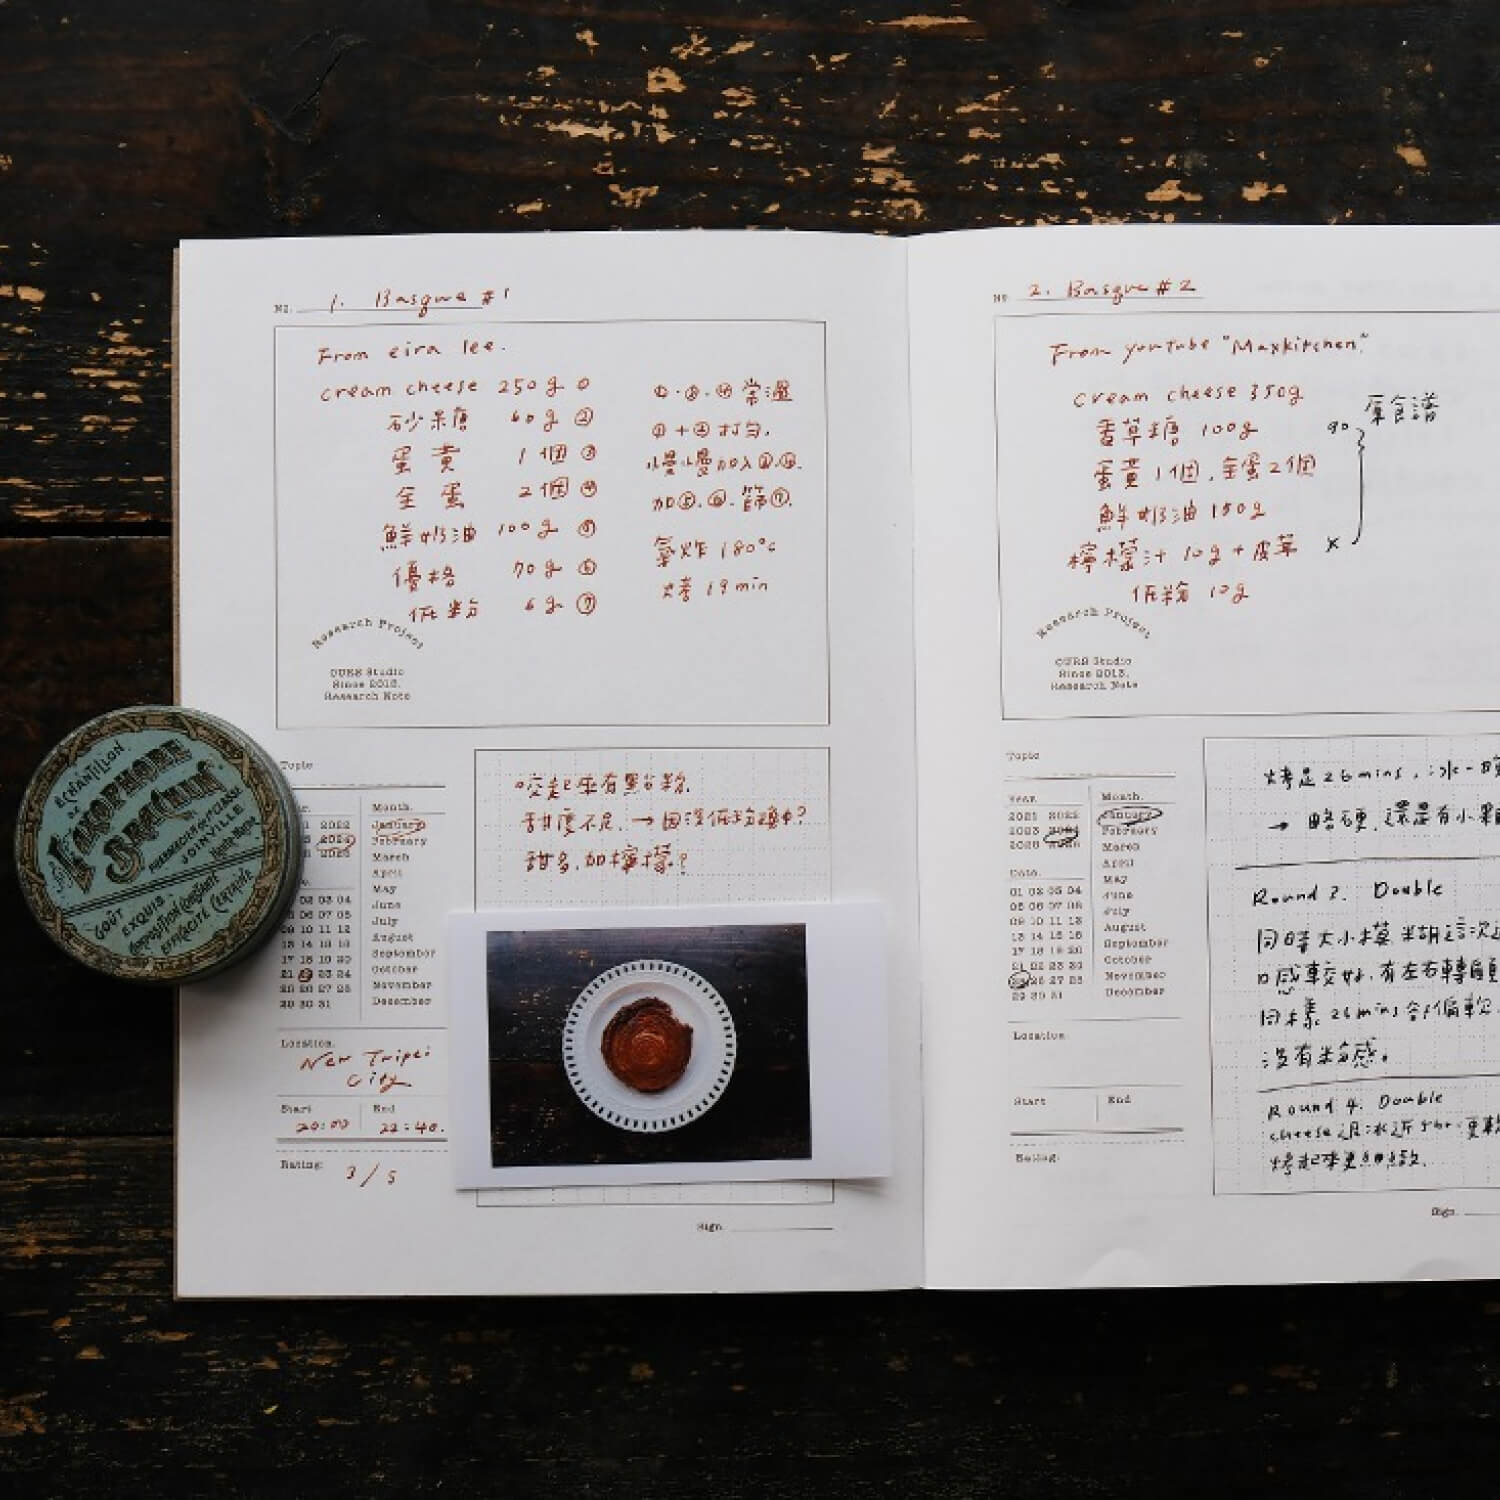 No. 1. Basque #1
From eira lee.
cream cheese 250g ①
砂糖 60g ②
蛋黃 1個 ③
全蛋 2個 ④
鮮奶油 100g ⑤
優格 70g ⑥
低粉 6g ⑦
①.③.④ 常溫
①+②打勻.
慢慢加入③.④.
加⑤.⑥.篩⑦.
氣炸 180°c
烤 19min
Research Project
OURS Studio
Since 2013.
Research Note
Topic
Month.
2022
January
February
March
April
May
June
July
August
September
October
November
December
02 03 04
05 06 07 08
09 10 11 12
13 14 15 16
17 18 19 20
21 22 23 24
25 26 27 28
29 30 31
Location.
New Taipei
City
Start
20:00
End
22:40.
Rating:
3/5
咬起來有點粉.
甜度不足. →因沒低粉過中?
甜多.加檸檬?
Sign.
ÉCHANTILLON
DE
VAKOPHORE
BRACHUN
PHARMACIEN DE 1ère CLASSE
JOINVILLE
Haute-Marne
GOÛT EXQUIS
COMPOSITION CONSTANTE
EFFICACITÉ CERTAINE
No. 2. Basque #2
From youtube "Maxkitchen."
cream cheese 350g
香草糖 100g
蛋黃1個.全蛋2個
鮮奶油 150g
檸檬汁 10g + 皮屑
低粉 10g
90
原食譜
x
Research Project
OURS Studio
Since 2013.
Research Note
Topic
Year.
2021 2022
2023 2024
2025
Month.
January
February
March
April
May
June
July
August
September
October
November
December
Date.
01 02 03 04
05 06 07 08
09 10 11 12
13 14 15 16
17 18 19 20
21 22 23 24
26 27 28
29 30 31
Location.
Start
End
Rating:
烤足26mins.冰一晚
→ 略硬.還是有小顆
Round 2. Double
同時大小模.糊這次
口感較好.有左右轉
同樣26mins
沒有粉感。
Round 4. Double
cheese退冰近5hr.更軟
烤起來更細緻.
Sign.